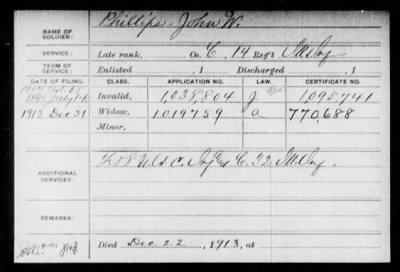 Phillips, John W.
NAME OF SOLDIER:
SERVICE: Late rank, Co. C, 14 Reg't Ill Inf
TERM OF SERVICE: Enlisted , 1 Discharged , 1
DATE OF FILING. CLASS. APPLICATION NO. LAW. CERTIFICATE NO.
1891 July 14 Invalid, 1,038,804 J 1,095,741
1913 Dec 31 Widow, 1019759 a 770,688
Minor,
ADDITIONAL SERVICES: F. 58 U.S.C. Inf C. 32 Ill Inf.
REMARKS:
Died Dec 22, 1913, at